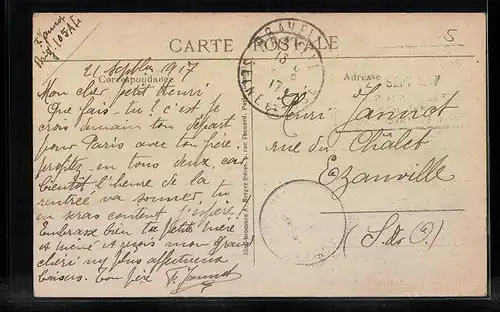 F. Jannot
CARTE POSTALE
5
21 Septbre 1917
Correspondance
Adresse
Mon cher petit Henri
Que fais-tu ? c'est je
crois demain ton départ
pour Paris avec ton frère.
profitez en tous deux, car
bientôt l'heure de la
rentrée va sonner, tu
en seras content j'espère!
Embrasse bien ta petite mère
et mémé et reçois mon grand
chéri my plus affectueux
baisers. Ton père F. Jannot
Henri Jannot
rue du Châlet
Ezanville
(S. & O.)
SEPT
17